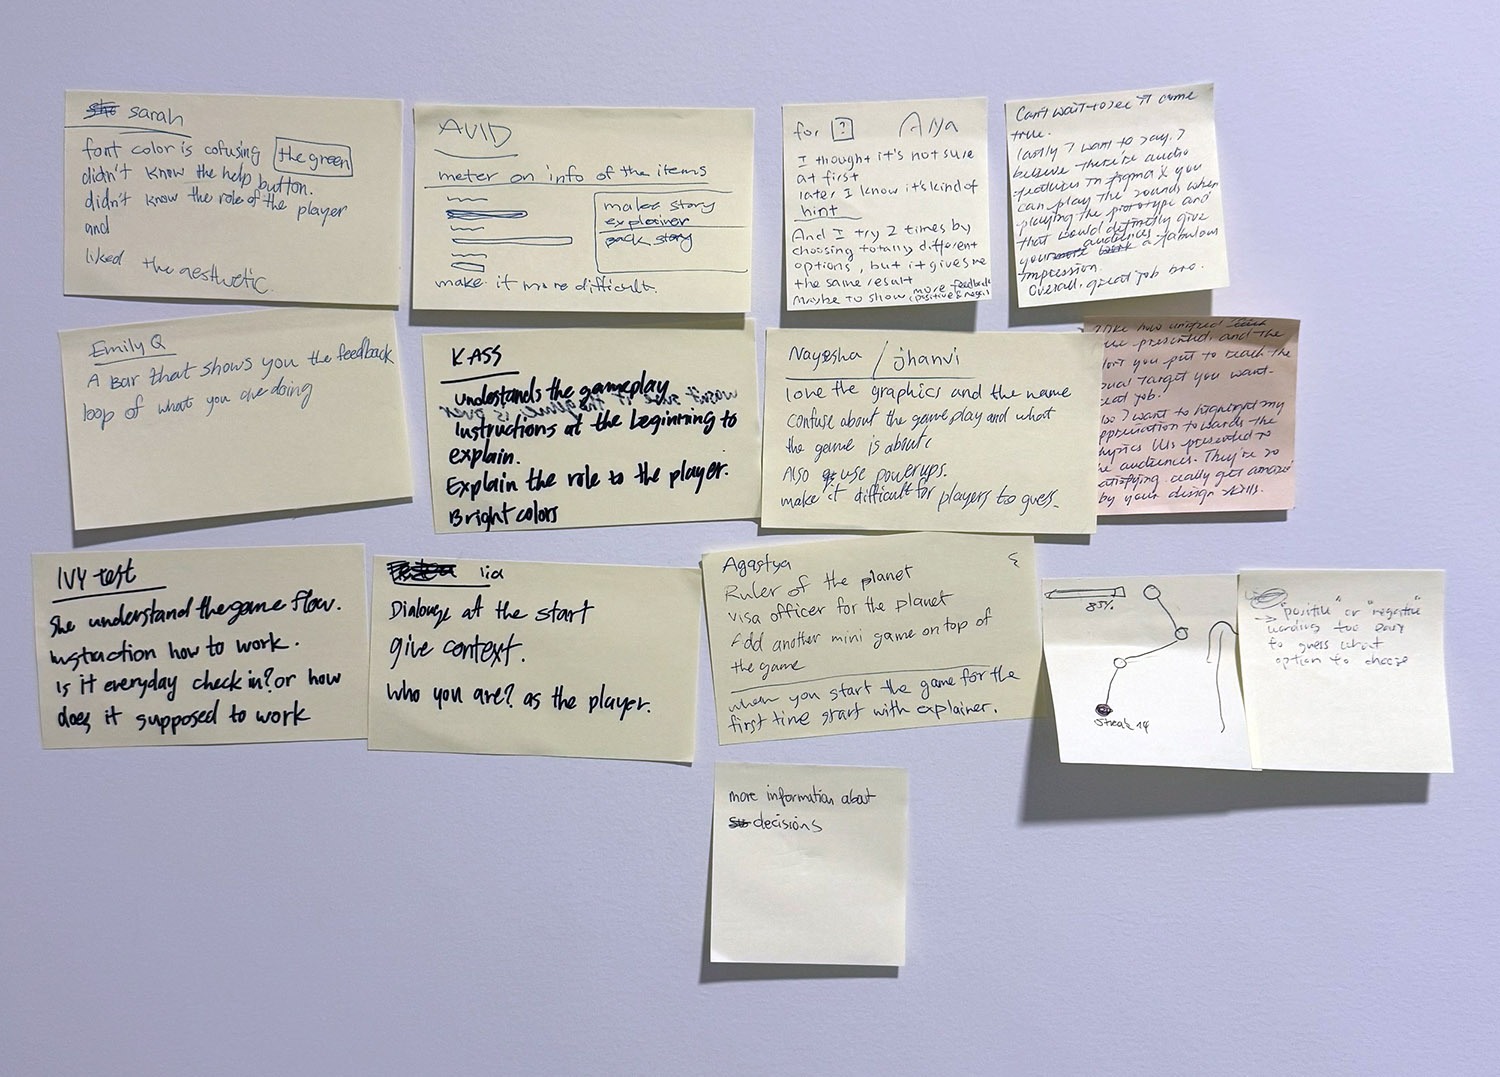 sarah
font color is cofusing the green
didn't know the help button.
didn't know the role of the player
and
liked the aesthetic.
AVID
meter on info of the items
make story
explainer
back story
make it more difficult.
for ? Aiya
I thought it's not sure
at first
later, I know it's kind of
hint
And I try 2 times by
choosing totally different
options, but it gives me
the same result
Maybe to show more feedback
(positive & negati
Can't wait to see it come
true.
lastly I want to say, I
believe there're audio
features in figma & you
can play the sounds when
playing the prototype and
that would definetly give
your audiences a fabulous
impression.
Overall, great job bro.
Emily Q
A Bar that shows you the feedback
loop of what you are doing
KASS
understands the gameplay
wasn't sure if the game is over
Instructions at the beginning to
explain.
Explain the role to the player.
Bright colors
Nayesha / jhanvi
love the graphics and the name
confuse about the gameplay and what
the game is about
Also use powerups.
make it difficult for players to guess.
like how unified
presented, and the
you put to reach the
target you want.
job.
I want to highlight my
appreciation towards the
UIs presented to
audiences. They're so
satisfying. really gets amazed
by your design skills.
IVY test
She understand the game flow.
instraction how to work.
is it everyday check in? or how
does it supposed to work
lia
Dialouge at the start
give context.
who you are? as the player.
Agastya
Ruler of the planet
visa officer for the planet
Add another mini game on top of
the game
when you start the game for the
first time start with explainer.
85%
streak 14
"positive" or "negative"
wording too easy
to guess what
option to choose
more information about
decisions